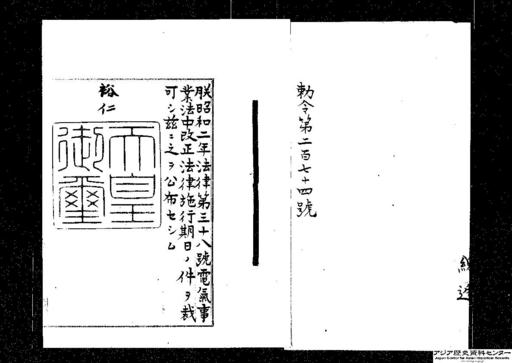 勅令第二百七十四號
朕昭和二年法律第三十八號電氣事
業法中改正法律施行期日ノ件ヲ裁
可シ茲ニ之ヲ公布セシム
裕仁
天皇
御璽
アジア歴史資料センター
Japan Center for Asian Historical Records